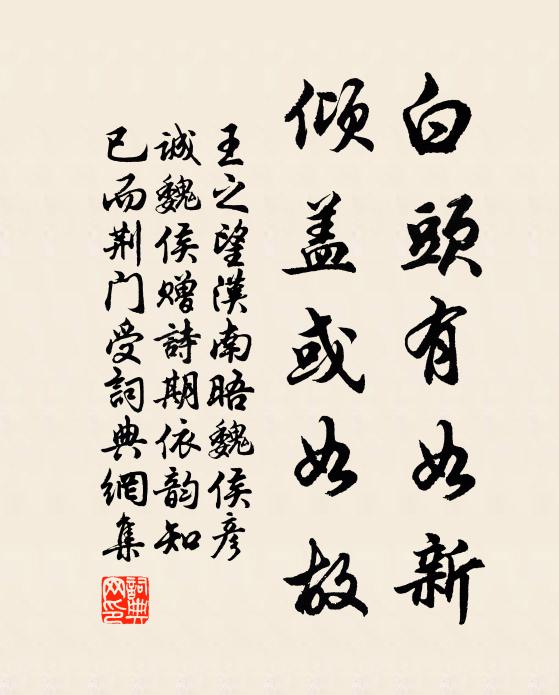 白頭有如新
傾盖或如故
王之望漢南晤魏侯彦
诚魏侯赠詩期依韵知
已而荆门受詞典網集